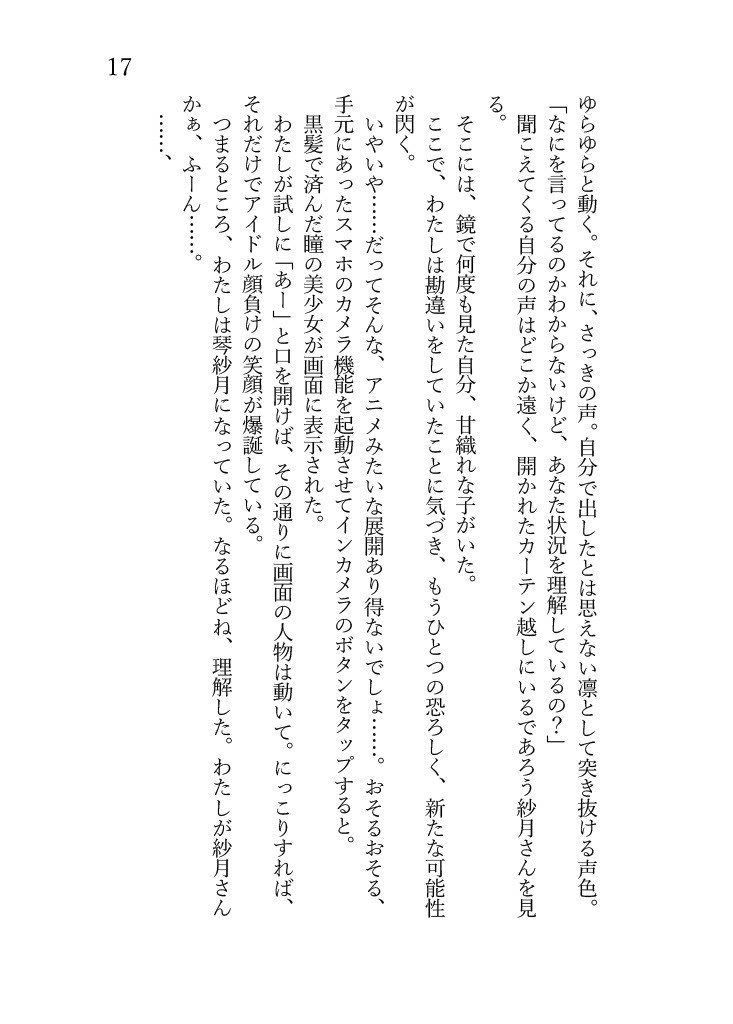 17
ゆらゆらと動く。それに、さっきの声。自分で出したとは思えない凛として突き抜ける声色。
「なにを言ってるのかわからないけど、あなた状況を理解しているの？」
聞こえてくる自分の声はどこか遠く、開かれたカーテン越しにいるであろう紗月さんを見
る。
そこには、鏡で何度も見た自分、甘織れな子がいた。
ここで、わたしは勘違いをしていたことに気づき、もうひとつの恐ろしく、新たな可能性
が閃く。
いやいや……だってそんな、アニメみたいな展開あり得ないでしょ……。おそるおそる、
手元にあったスマホのカメラ機能を起動させてインカメラのボタンをタップすると。
黒髪で済んだ瞳の美少女が画面に表示された。
わたしが試しに「あー」と口を開けば、その通りに画面の人物は動いて。にっこりすれば、
それだけでアイドル顔負けの笑顔が爆誕している。
つまるところ、わたしは琴紗月になっていた。なるほどね、理解した。わたしが紗月さん
かぁ、ふーん……。
……、